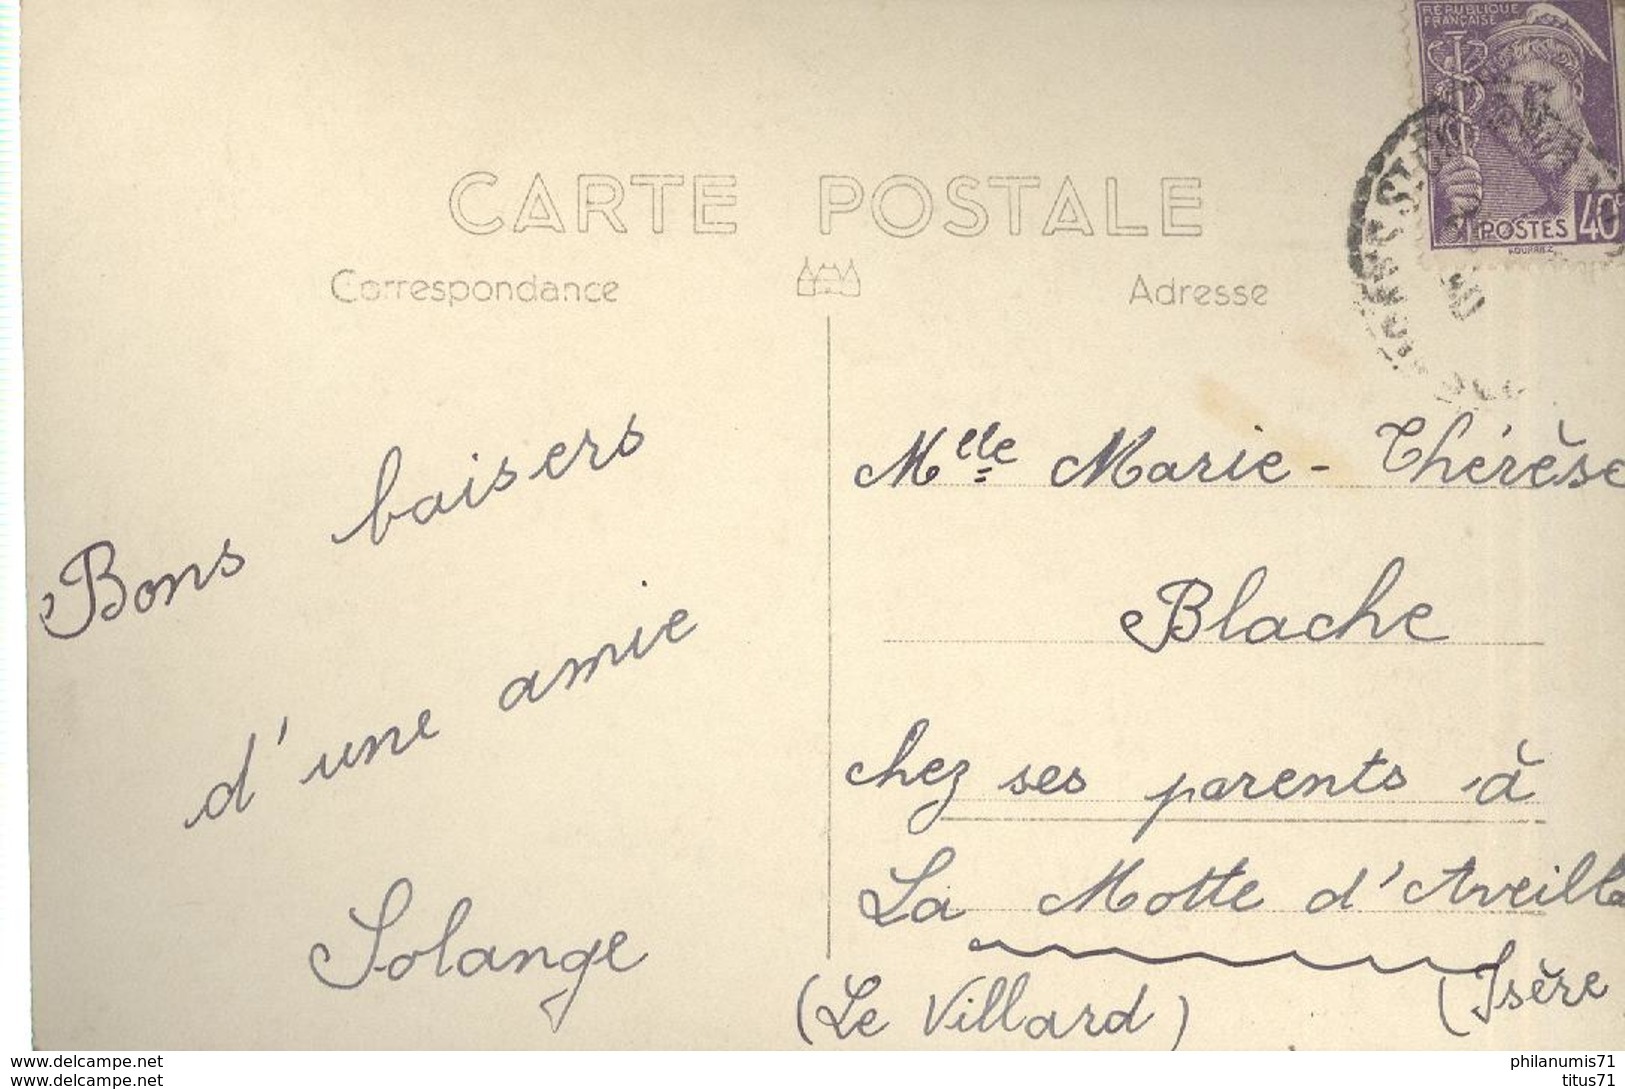 RÉPUBLIQUE
FRANÇAISE
POSTES 40c
CARTE POSTALE
Correspondance
Adresse
Bons baisers
d'une amie
Solange
Mlle Marie-Thérèse
Blache
chez ses parents à
La Motte d'Aveilla
(Le Villard) (Isère
www.delcampe.net
www.delcampe.net
philanumis71
titus71